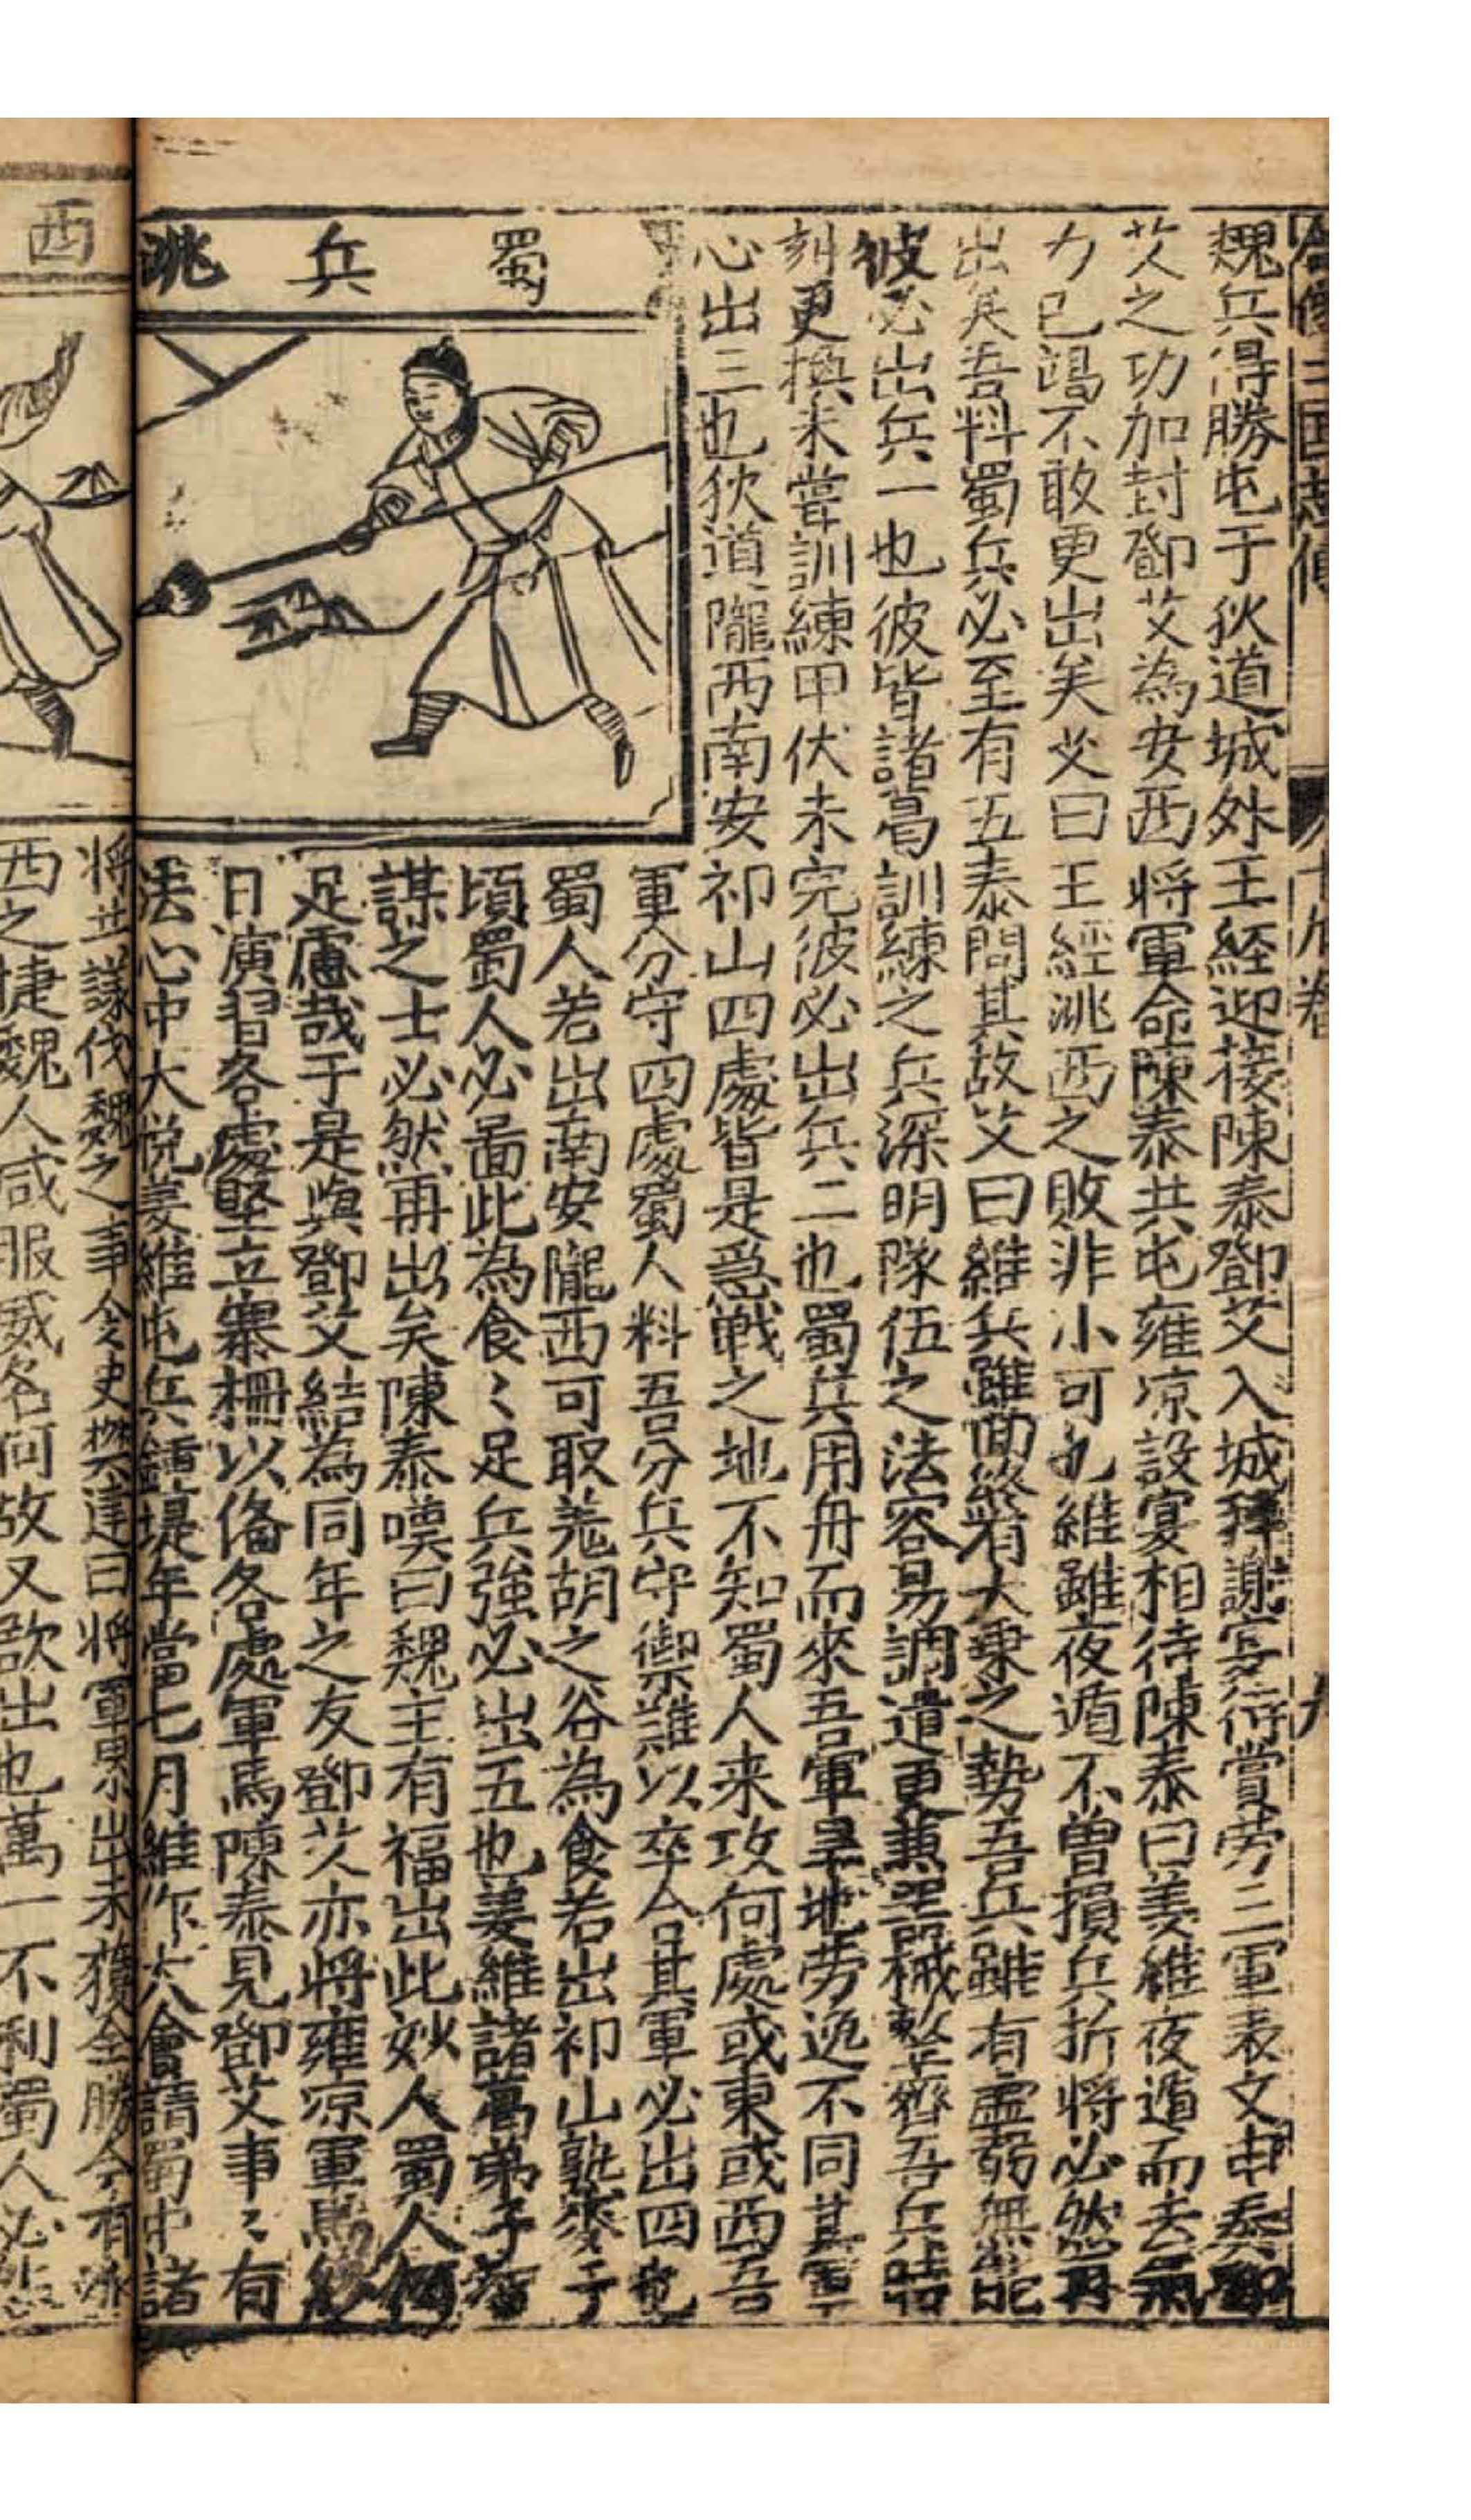 全像三國志傳 十九卷 九
魏兵得勝屯于狄道城外王経迎接陳泰鄧艾入城拜謝宴待賞劳三軍表文申奏
艾之功加封鄧艾為安西将軍命陳泰共屯雍凉設宴相待陳泰曰姜維夜遁而去氣
力已竭不敢更出矣艾曰王經洮西之敗非小可也維雖夜遁不曽損兵折将必然再
出矣吾料蜀兵必至有五泰問其故艾曰維兵雖面終有大乗之勢吾兵雖有虚弱無能
彼必出兵一也彼皆諸葛訓練之兵深明隊伍之法容易調遣更兼噐械整齊吾兵時
刻更換未嘗訓練甲伏未完彼必出兵二也蜀兵用舟而來吾軍旱地劳逸不同其軍
心出三也狄道隴西南安祁山四處皆是爲戦之地不知蜀人来攻何處或東或西吾
軍分守四處蜀人料吾分兵守禦難以卒合其軍必出四也
蜀人若出南安隴西可取羌胡之谷為食若出祁山熟麥千
頃蜀人必面此為食〻足兵強必出五也姜維諸葛弟子
謀之士必然再出矣陳泰嘆曰魏主有福出此妙人蜀人何
足慮哉于是與鄧艾結為同年之友鄧艾亦将雍凉軍馬
日演習各處堅立寨柵以俻各處軍馬陳泰見鄧艾事〻有
法心中大悅姜維屯兵鍾堤年當七月維作大會請蜀中諸
蜀兵洮
西
将共議伐魏之事令史樊建曰将軍累出未獲全勝今有洮
西之捷魏人咸服威名何故又欲出也萬一不利蜀人必